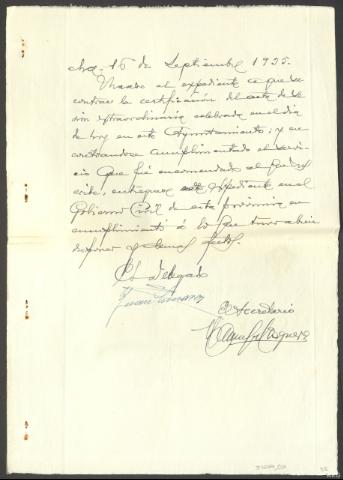 15 de Septiembre 1935.
Unase al expediente a que se
contrae la certificación del acta de Se
sión extraordinaria celebrada en el dia
de hoy en este Ayuntamiento; y en
contrandose cumplimentado el servi
cio que fué encomendado al que sus
cribe, entreguese este expediente en el
Gobierno Civil de esta provincia en
cumplimiento á lo que tuvo a bien
disponer
El Delegado
Juan
El Secretario
Manuel